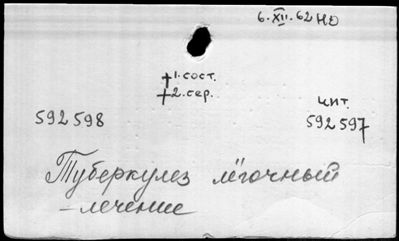 6.XII.62 НО
+1. сост.
+2. сер.
592598
чит.
592597
Туберкулез лёгочный
- лечение